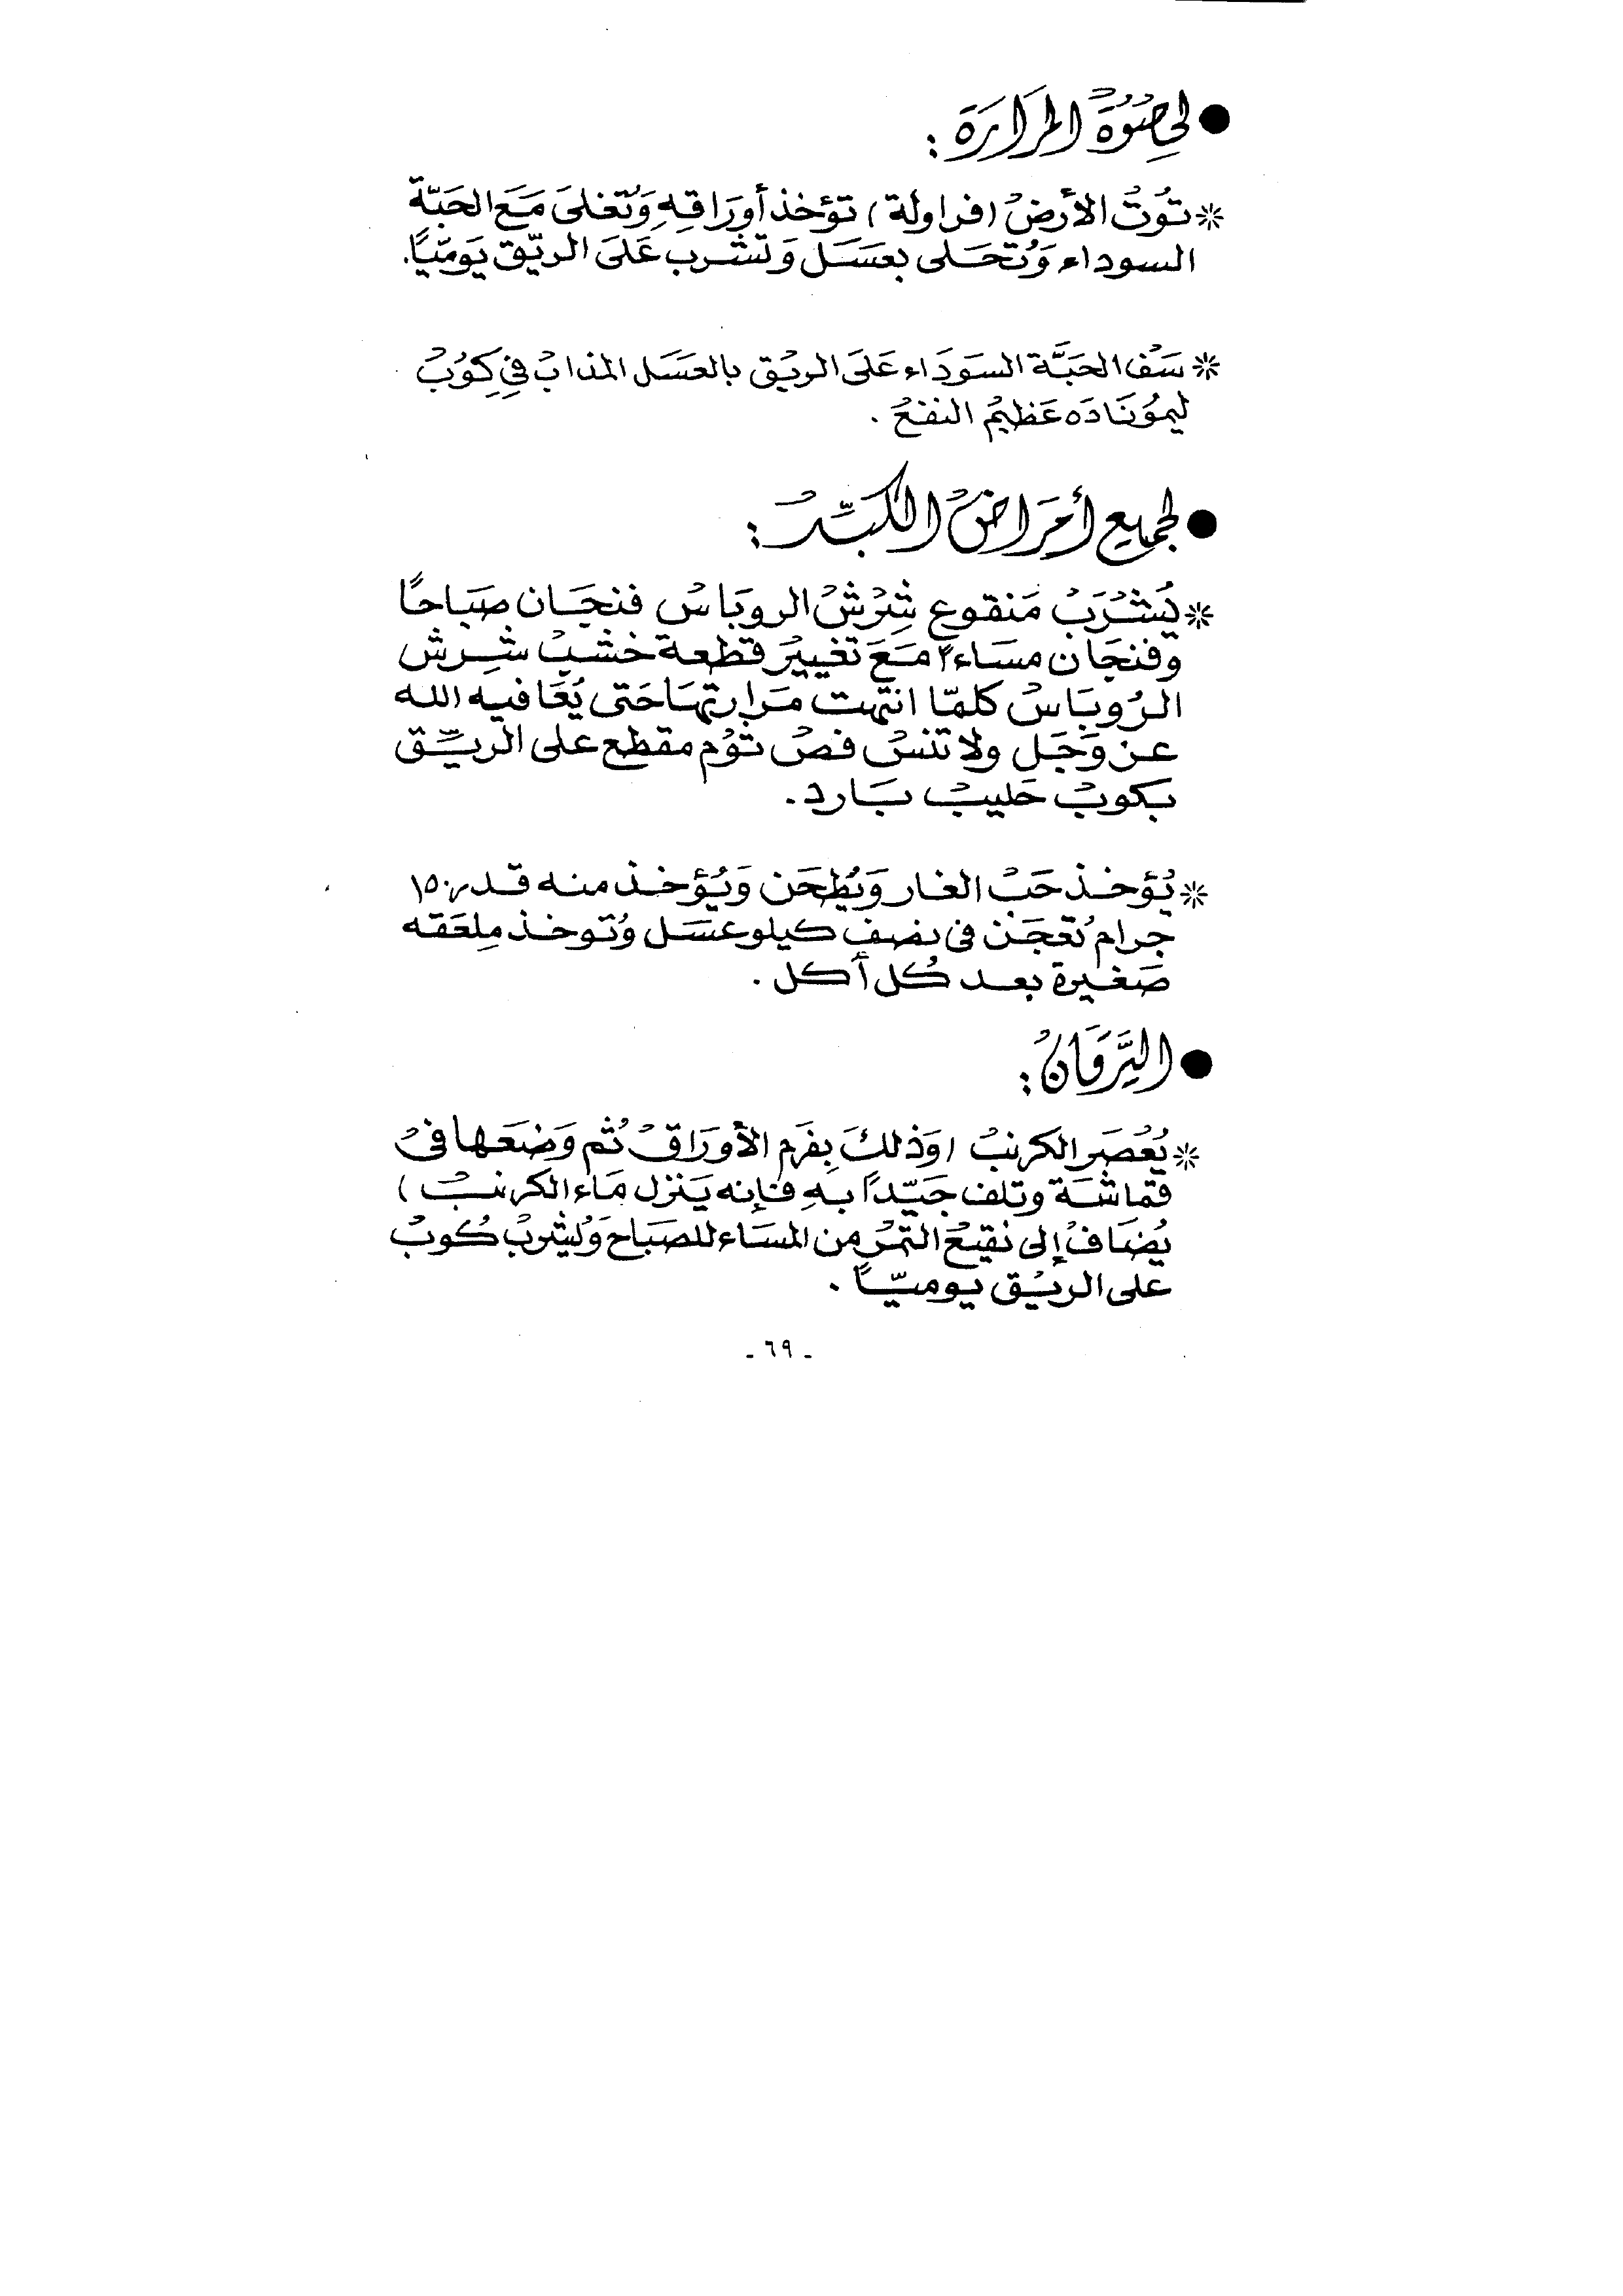 ● لحصوة المرارة :
* توت الأرض (فراولة) تؤخذ أوراقه وتغلى مع الحبة
السوداء وتحلى بعسل وتشرب على الريق يوميًا.
* سف الحبة السوداء على الريق بالعسل المذاب في كوب
ليموناده عظيم النفع .
● لجميع أمراض الكبد :
* يشرب منقوع شرش الروباس فنجان صباحًا
وفنجان مساءً مع تغيير قطعة خشب شرش
الروباس كلما انتهت مرارتها حتى يعافيه الله
عز وجل ولا تنس فص توم مقطع على الريق
بكوب حليب بارد .
* يؤخذ حب الغار ويطحن ويؤخذ منه قدر ١٥٠
جرام تعجن فى نصف كيلو عسل وتوخذ ملعقه
صغيرة بعد كل أكل .
● اليرقان :
* يعصر الكرنب (وذلك بفرم الأوراق ثم وضعها فى
قماشة وتلف جيّدًا به فإنه ينزل ماء الكرنب )
يضاف إلى نقيع التمر من المساء للصباح ويشرب كوب
على الريق يوميًّا .
- ٦٩ -